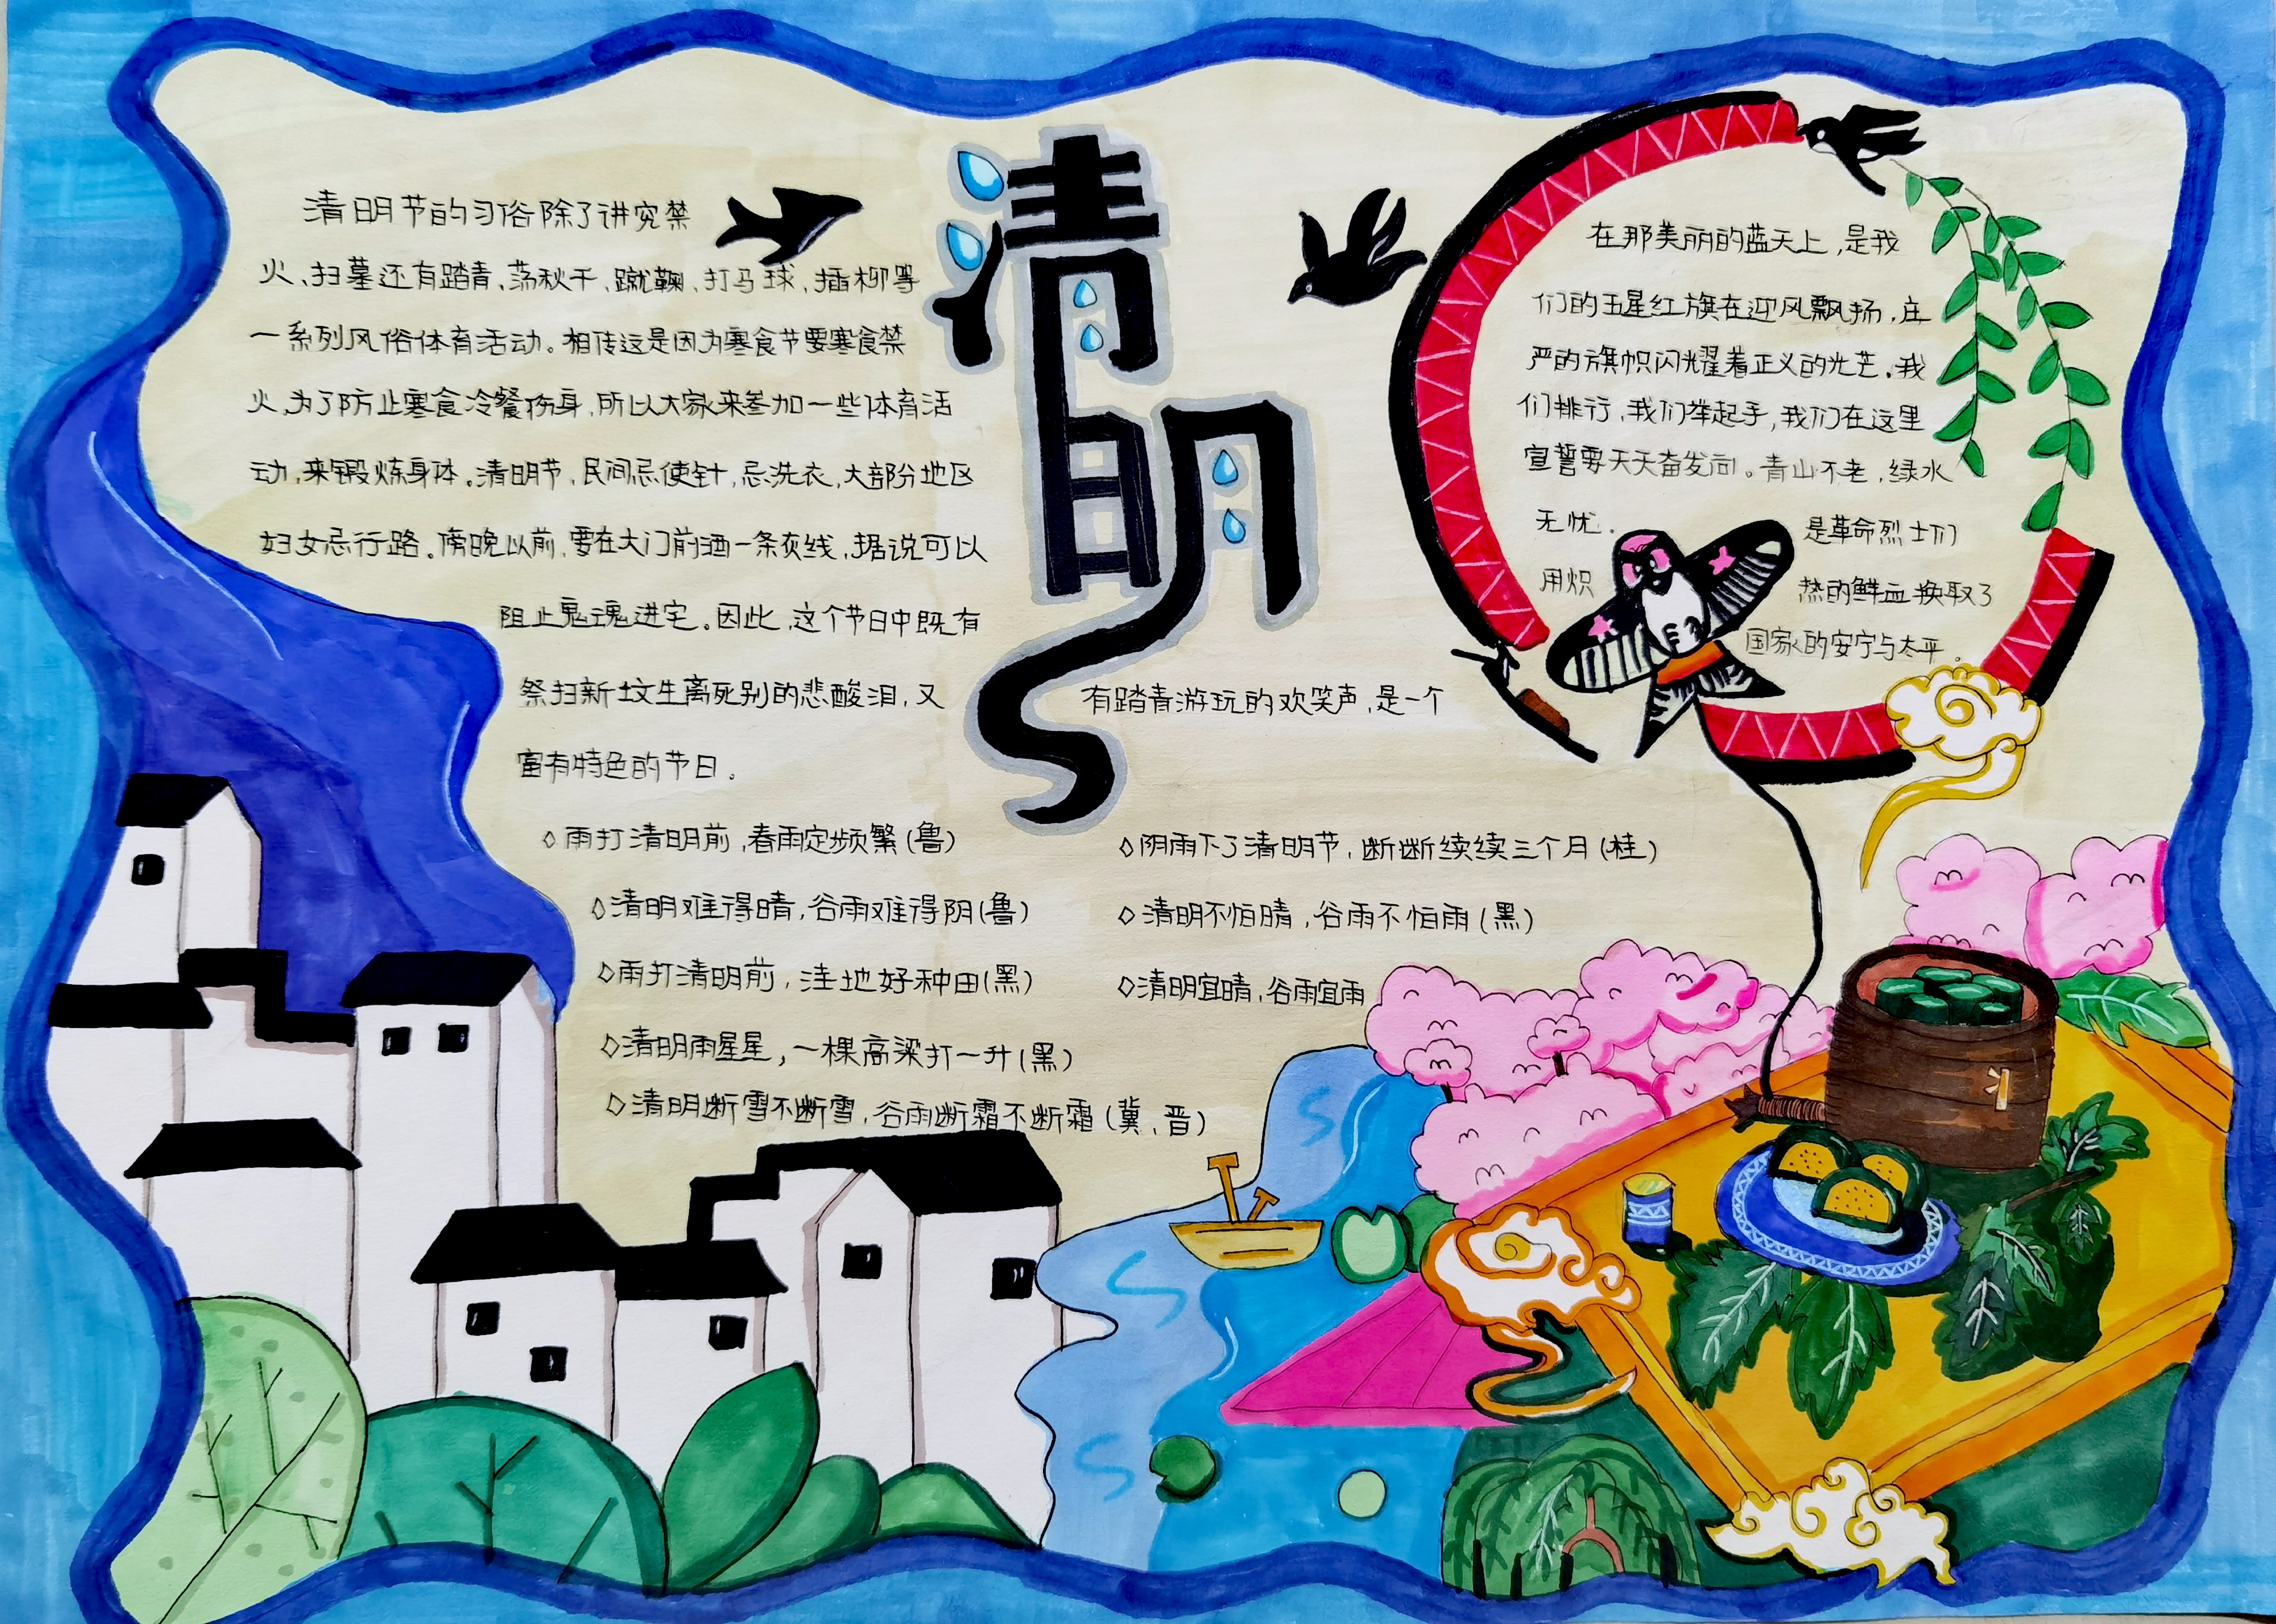 清明
清明节的习俗除了讲究禁
火、扫墓还有踏青、荡秋千、蹴鞠、打马球、插柳等
一系列风俗体育活动。相传这是因为寒食节要寒食禁
火、为了防止寒食冷餐伤身,所以大家来参加一些体育活
动,来锻炼身体。清明节,民间忌使针,忌洗衣,大部分地区
妇女忌行路。傍晚以前,要在大门前洒一条灰线,据说可以
阻止鬼魂进宅。因此,这个节日中既有
祭扫新坟生离死别的悲酸泪,又 有踏青游玩的欢笑声,是一个
富有特色的节日。
◇雨打清明前,春雨定频繁(鲁)
◇清明难得晴,谷雨难得阴(鲁)
◇雨打清明前,洼地好种田(黑)
◇清明雨星星,一棵高粱打一升(黑)
◇清明断雪不断雪,谷雨断霜不断霜(冀、晋)
◇阴雨下了清明节,断断续续三个月(桂)
◇清明不怕晴,谷雨不怕雨(黑)
◇清明宜晴,谷雨宜雨
在那美丽的蓝天上,是我
们的五星红旗在迎风飘扬,庄
严的旗帜闪耀着正义的光芒。我
们排行,我们举起手,我们在这里
宣誓要天天奋发向。青山不老,绿水
无忧. 是革命烈士们
用炽 热的鲜血换取了
国家的安宁与太平。